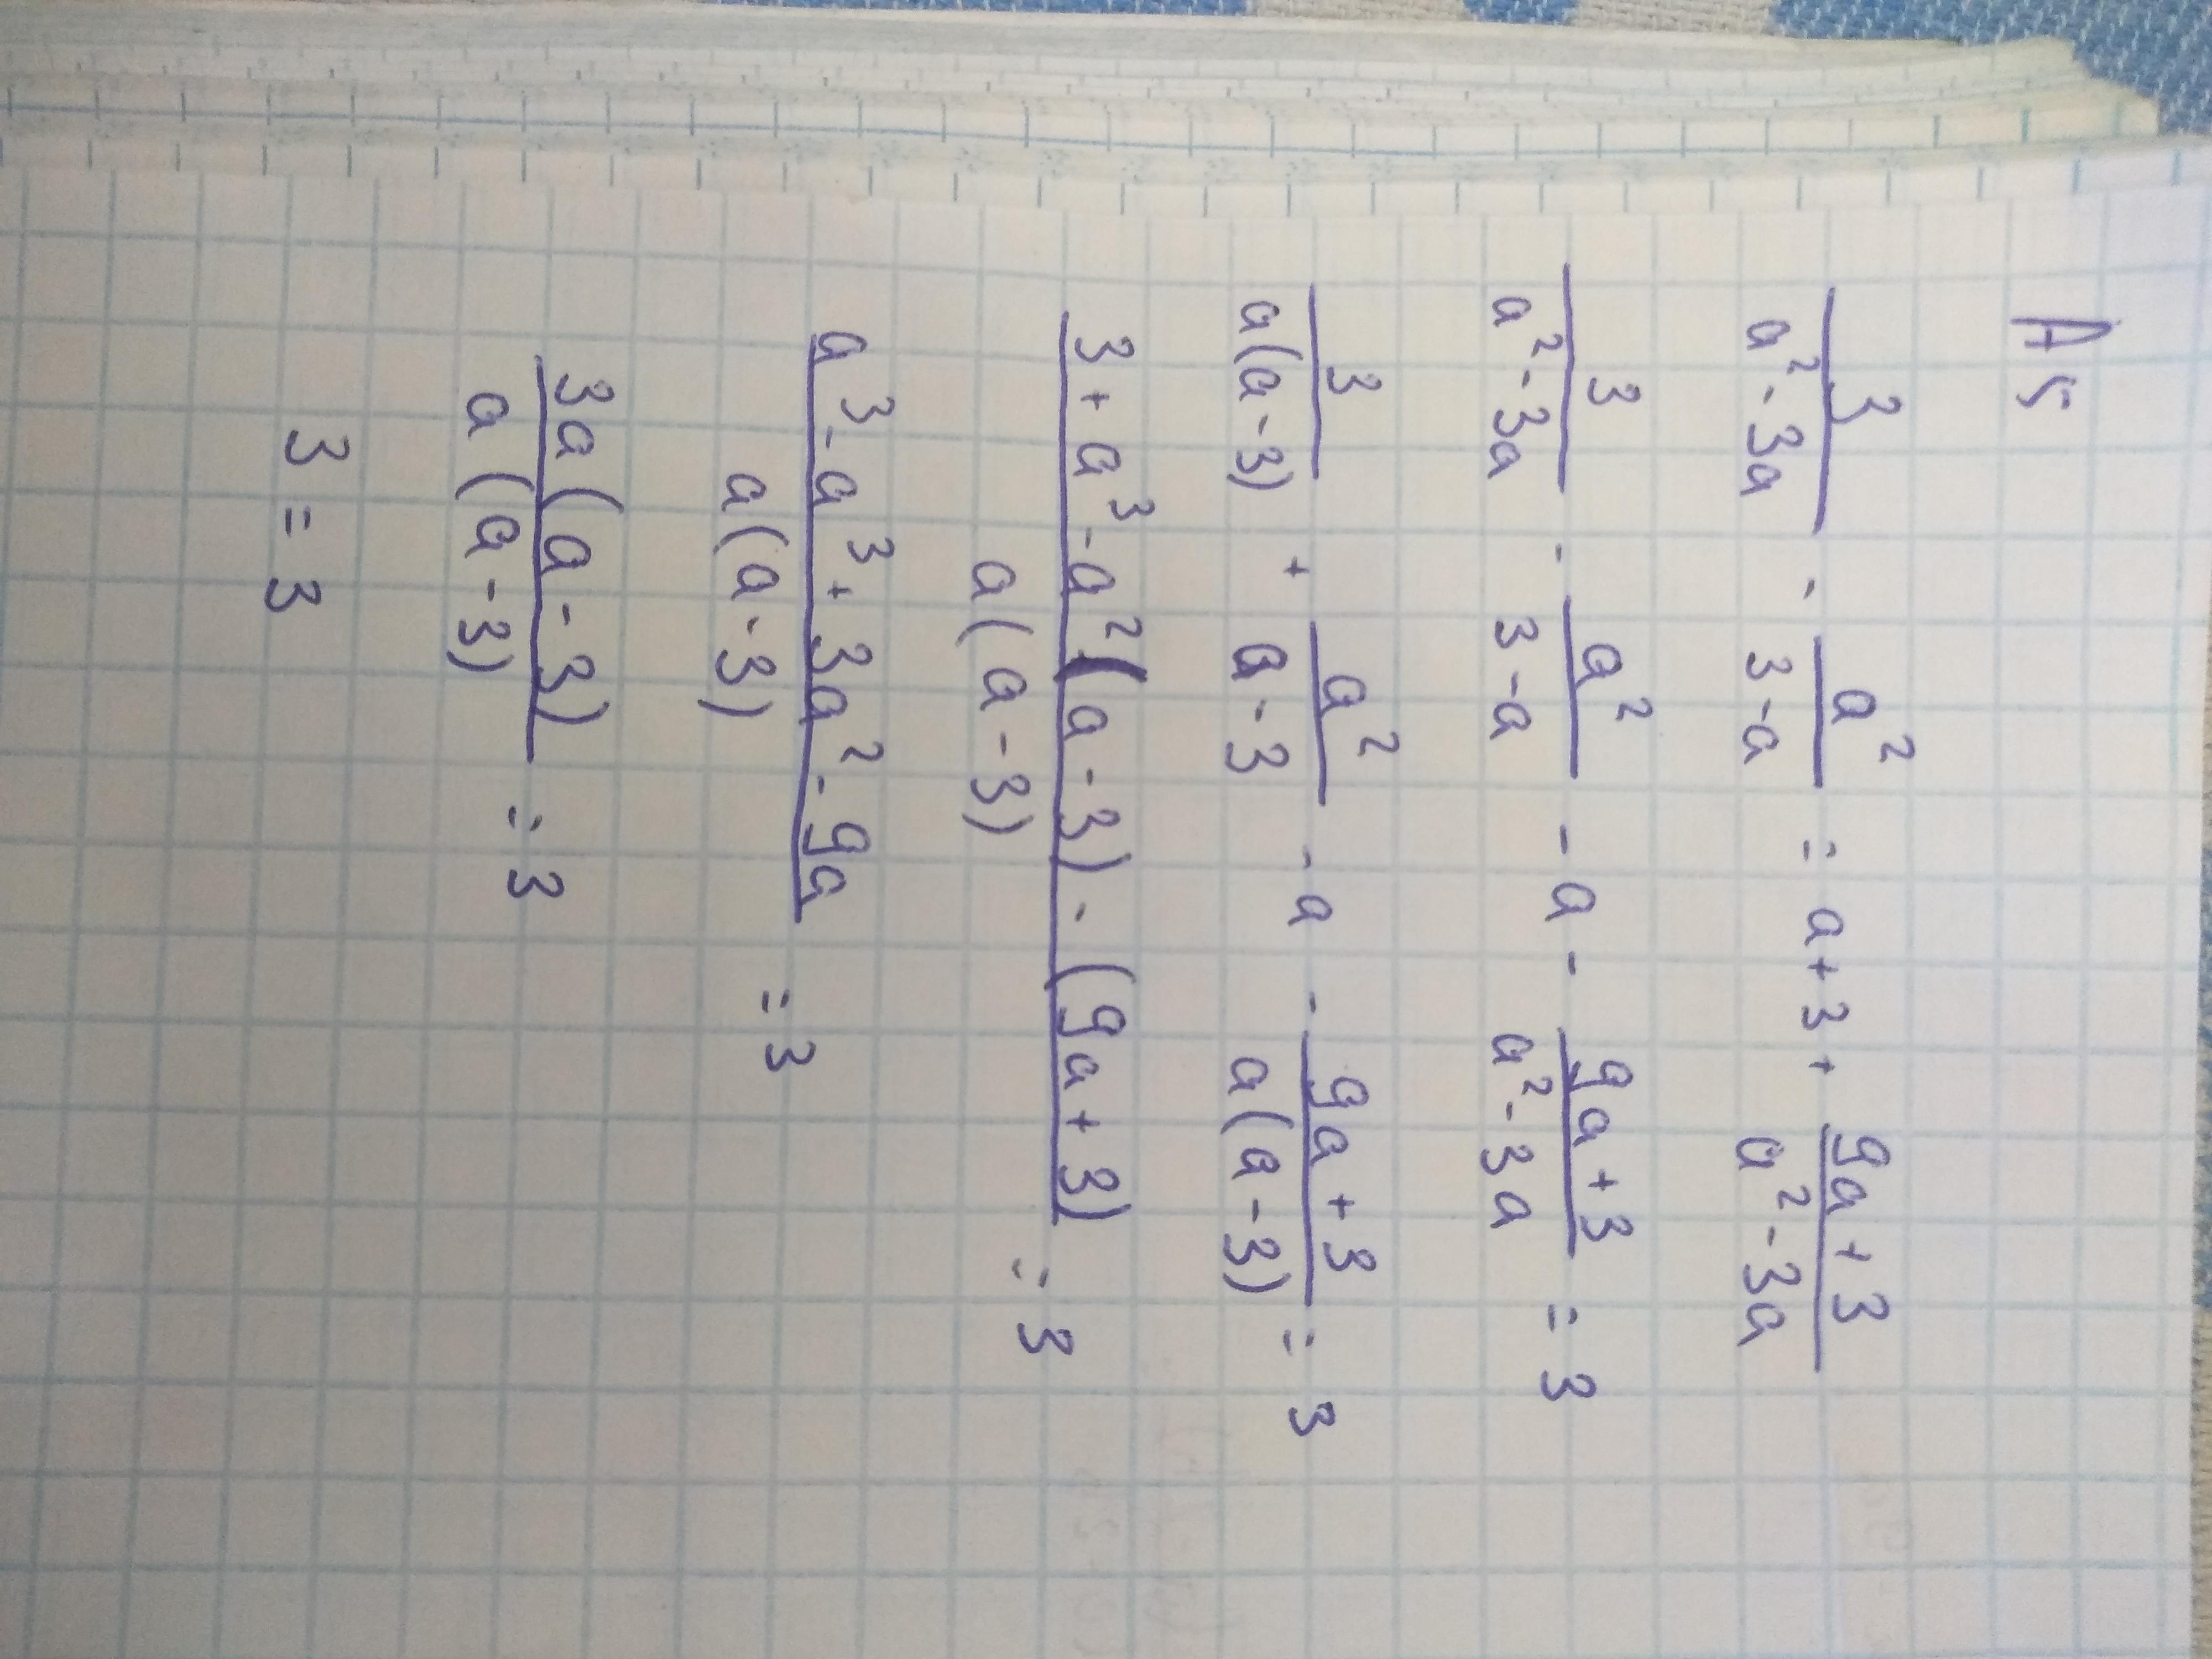 A5
3/(a² - 3a) - a²/(3 - a) = a + 3 + (9a + 3)/(a² - 3a)
3/(a² - 3a) - a²/(3 - a) - a - (9a + 3)/(a² - 3a) = 3
3/(a(a - 3)) + a²/(a - 3) - a - (9a + 3)/(a(a - 3)) = 3
(3 + a³ - a²(a - 3) - (9a + 3))/(a(a - 3)) = 3
(a³ - a³ + 3a² - 9a)/(a(a - 3)) = 3
(3a(a - 3))/(a(a - 3)) = 3
3 = 3